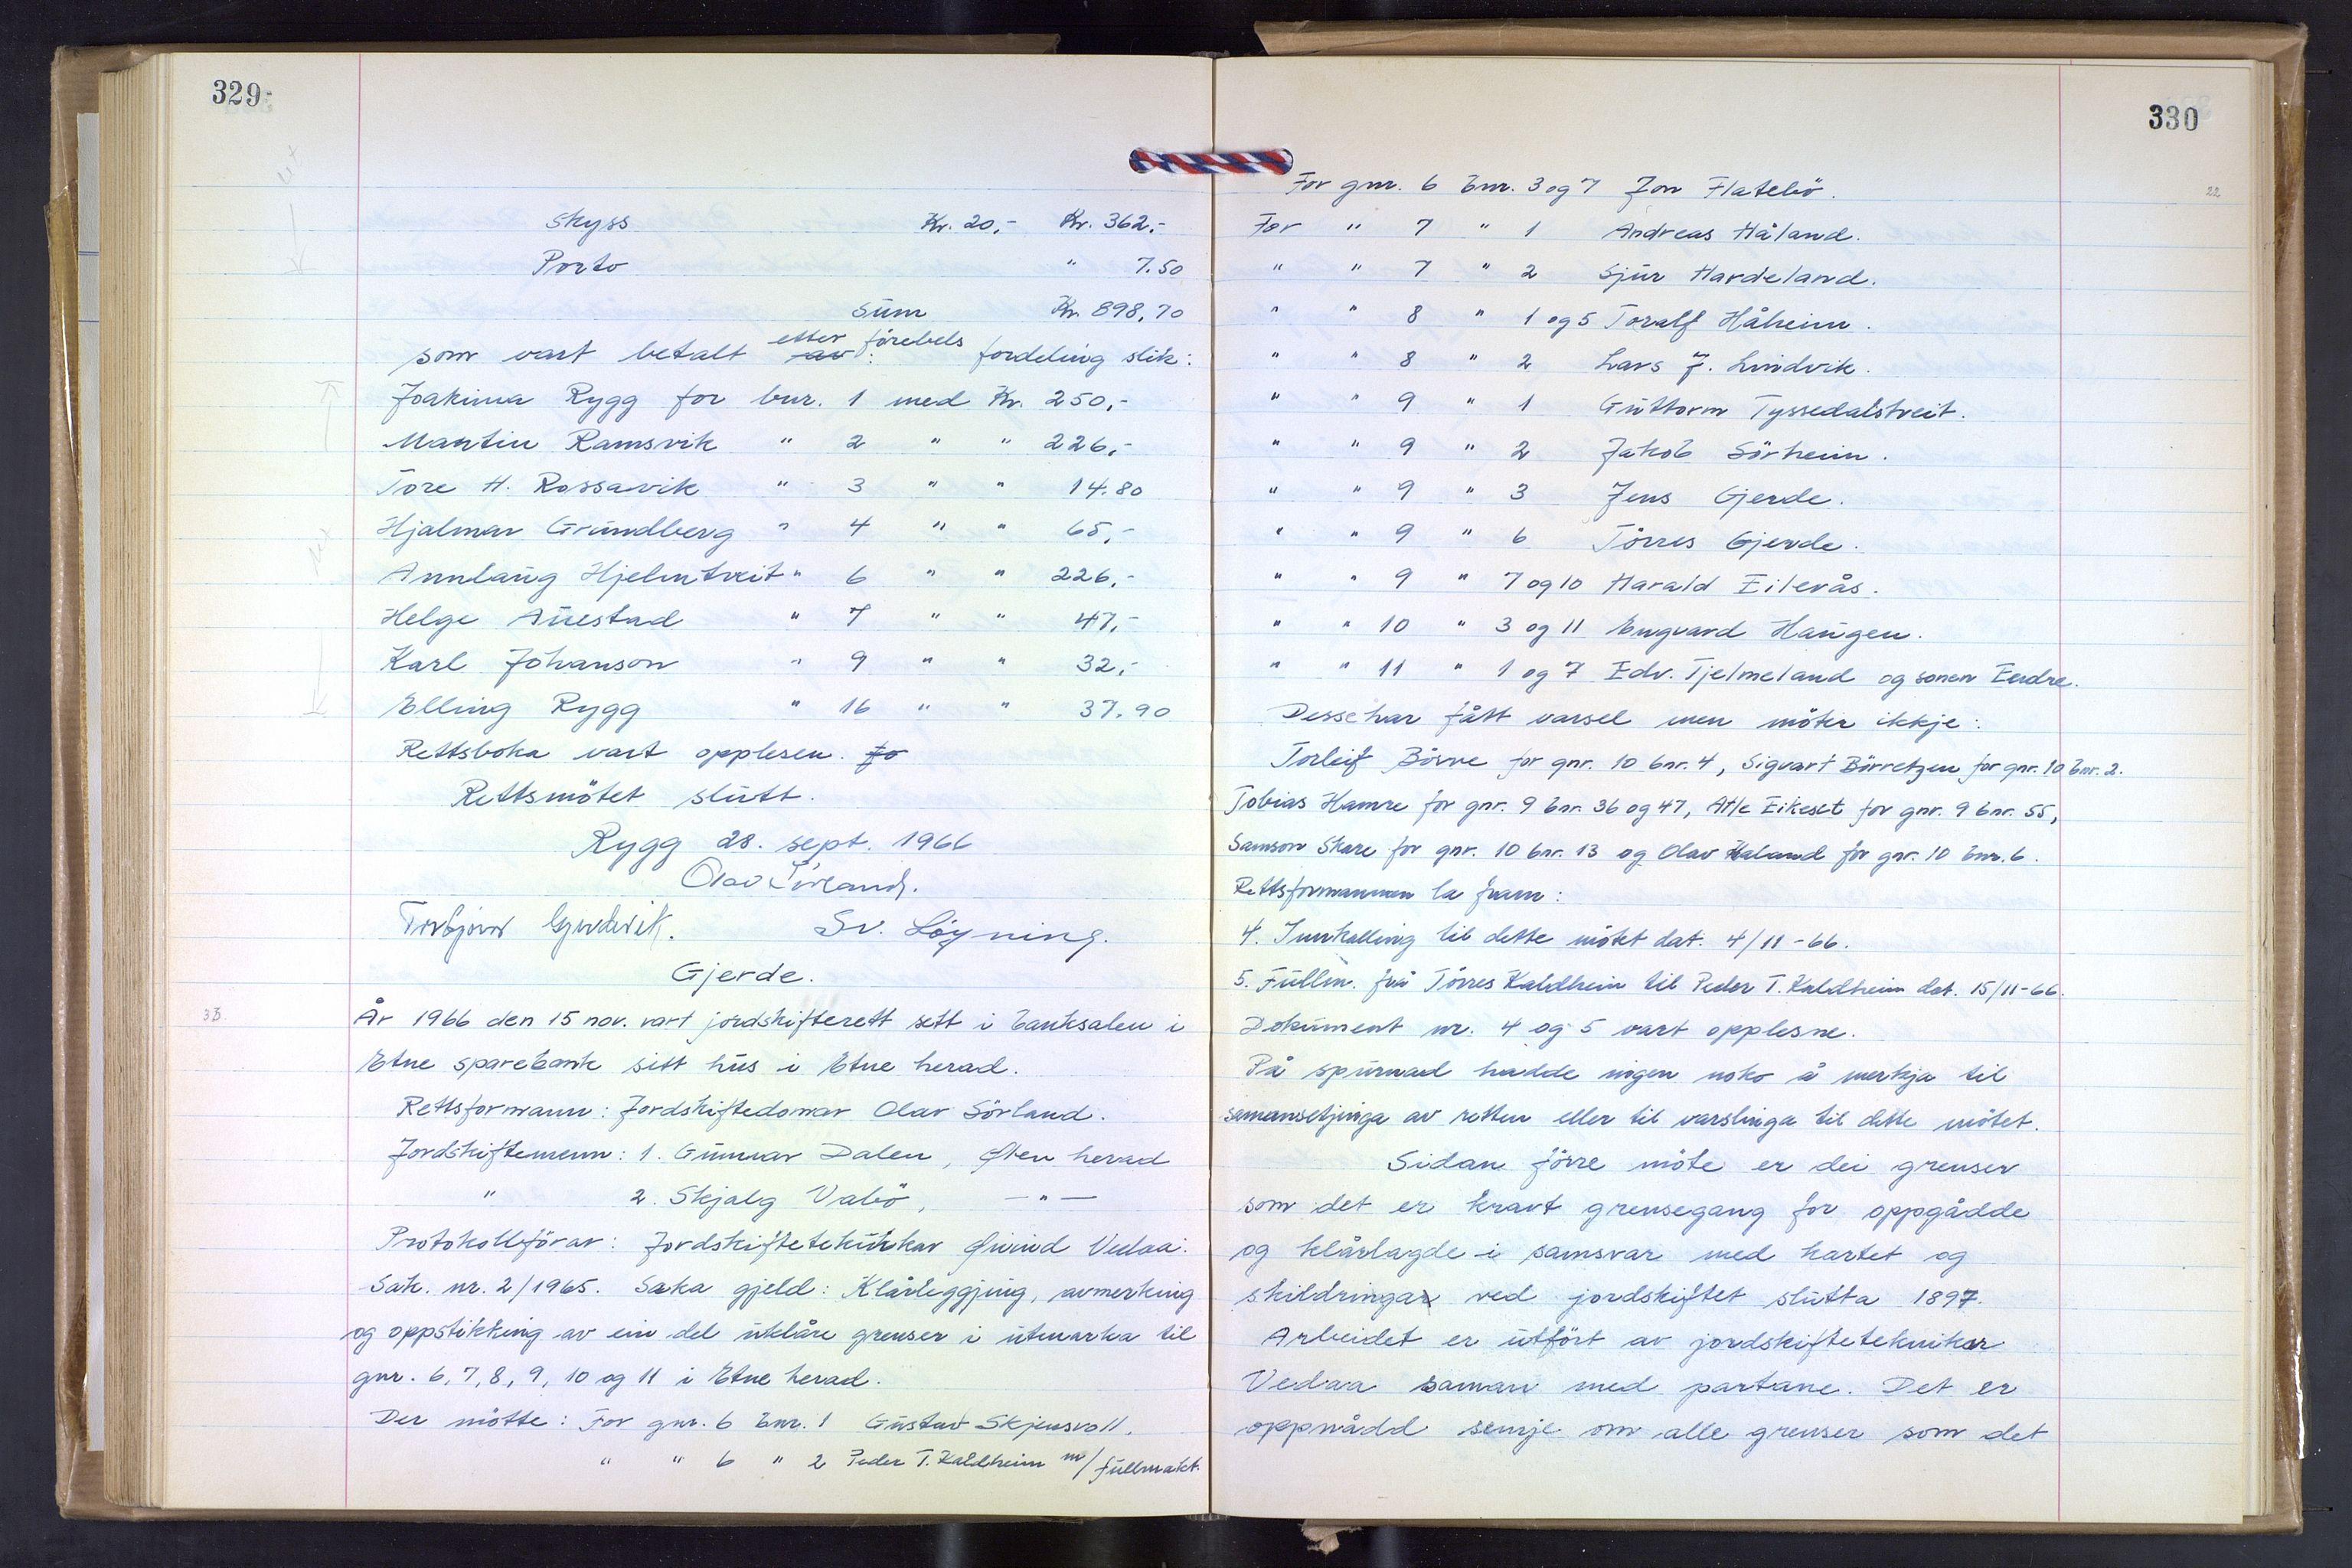 329
Skyss Kr. 20,- Kr. 362,-
Porto " 7.50
Sum Kr. 898,70
som vart betalt av: etter förebels fordeling slik:
Joakima Rygg for bnr. 1 med Kr. 250,-
Martin Ramsvik " 2 " " 226,-
Tore H. Rossavik " 3 " " 14.80
Hjalmar Grundberg " 4 " " 65,-
Annlaug Hjelmtveit " 6 " " 226,-
Helge Auestad " 7 " " 47,-
Karl Johanson " 9 " " 32,-
Elling Rygg " 16 " " 37.90
Rettsboka vart opplesen. fo
Rettsmötet slutt.
Rygg 28. sept. 1966
Olav Sörland.
Torbjörn Gjerdevik. Sv. Löyning.
Gjerde.
33. År 1966 den 15 nov. vart jordskifterett sett i banksalen i
Etne sparebank sitt hus i Etne herad.
Rettsformann: Jordskiftedomar Olav Sörland.
Jordskiftemenn: 1. Gunnar Dalen, Ölen herad
" 2. Skjalg Vabö, — " —
Protokollförar: Jordskifteteknikar Øivind Vedaa.
Sak. nr. 2/1965. Saka gjeld: Klårleggjing, avmerking
og oppstikking av ein del uklåre grenser i utmarka til
gnr. 6, 7, 8, 9, 10 og 11 i Etne herad.
Der mötte: For gnr. 6 bnr. 1 Gustav Skjensvoll.
" " 6 " 2 Peder T. Kaldheim m/fullmakt.
330
For gnr. 6 bnr. 3 og 7 Jon Flatebö.
22
For " 7 " 1 Andreas Håland.
" " 7 " 2 Sjur Hardeland.
" " 8 " 1 og 5 Toralf Håheim.
" " 8 " 2 Lars J. Lindvik.
" " 9 " 1 Guttorm Tyssedalstveit.
" " 9 " 2 Jakob Sörheim.
" " 9 " 3 Jens Gjerde.
" " 9 " 6 Törres Gjerde.
" " 9 " 7 og 10 Harald Eilevås.
" " 10 " 3 og 11 Engvard Haugen.
" " 11 " 1 og 7 Edv. Tjelmeland og sonen Endre.
Desse har fått varsel men möter ikkje:
Torleif Börve for gnr. 10 bnr. 4, Sigvart Börretzen for gnr. 10 bnr. 2.
Tobias Hamre for gnr. 9 bnr. 36 og 47, Atle Eikeset for gnr. 9 bnr. 55,
Samson Skare for gnr. 10 bnr. 13 og Olav Håland for gnr. 10 bnr. 6.
Rettsformannen la fram:
4. Innkalling til dette mötet dat. 4/11-66.
5. Fullm. frå Törres Kaldheim til Peder T. Kaldheim dat. 15/11-66.
Dokument nr. 4 og 5 vart opplesne.
På spurnad hadde ingen noko å merkja til
samansetjinga av retten eller til varslinga til dette mötet.
Sidan förre möte er dei grenser
som det er kravt grensegang for oppgådde
og klårlagde i samsvar med kartet og
skildringar ved jordskiftet slutta 1897.
Arbeidet er utfört av jordskifteteknikar
Vedaa saman med partane. Det er
oppnådd semje om alle grenser som det